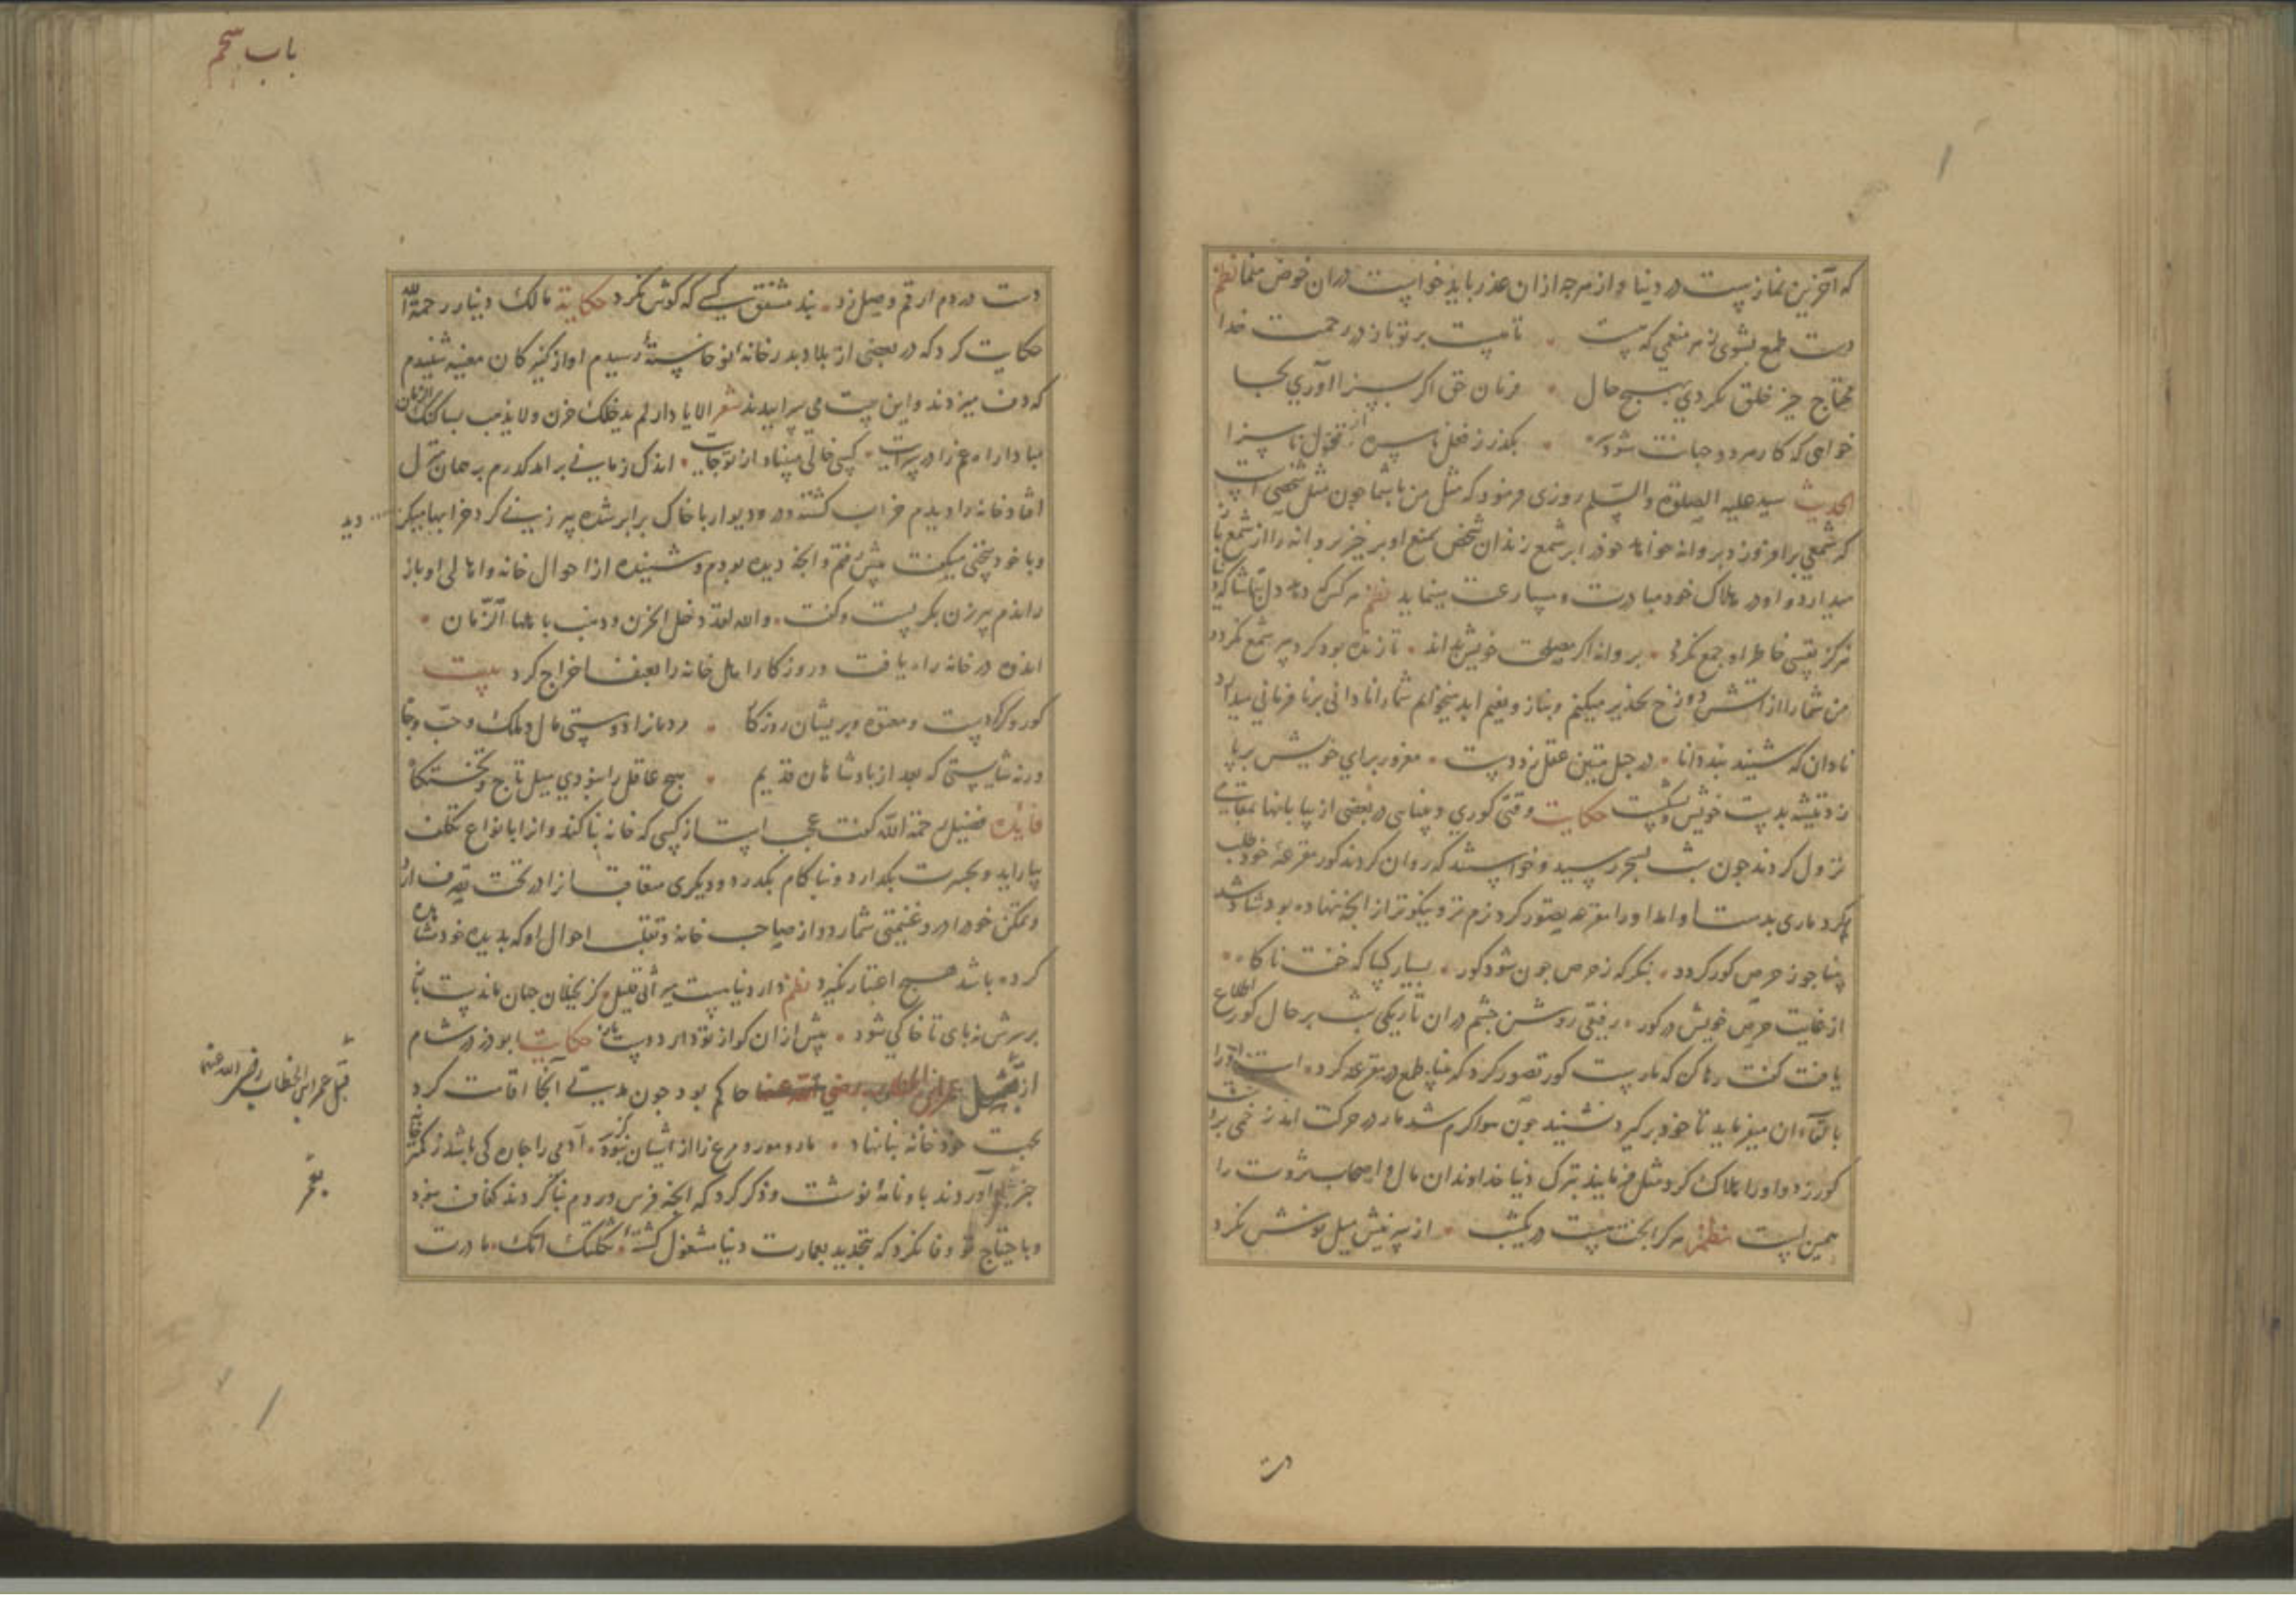 که آخرین نمازیست در دنیا و از هرچه ازان عذر باید خواست دران خوض منما نظم
دست طمع بشوی ز هر منعمی که هست تا هست بر تو باز در رحمت خدا
محتاج خیر خلق نکردی بهیچ حال فرمان حق اکر بسزا آوری بجا
خواهی که کار هر دو جهانت شود بکذر ز فعل ناسره از قول ناسزا
الحدیث سید علیه الصلوة والسلم روزی فرمود که مثل من با شما جون مثل شخصی است
که شمعی برافروزد و بروانه خواهد خود را بر شمع زند ان شخص بمنع او برخیزد و بروانه را از شمع باز
میدارد و او در هلاک خود مبادرت و مسارعت مینماید نظم هر کس که دل
هرکز نفسی خاطر او جمع نکردد بروانه اکر مصلحت خویش بداند تا زنده بود کرد سر شمع نکردد
من شما را از آتش دوزخ تحذیر میکنم و بناز و نعیم ابد میخوانم شما را نادانی برنافرمانی میدارد
نادان که شنید بند دانا در حبل متین عقل زد دست مغرور برای خویش برپا
زد تیشه بدست خویش و بشکست حکایت وقتی کوری و بینایی در بعضی از بیابانها بمقامی
نزول کردند جون شب بسحر رسید و خواستند که روان کردند کور مقرعهٔ خود طلب
میکرد ماری بدست او امد او را مقرعه تصور کرد نرم تر و نیکوتر از انچه نهاده بود شاد شد
بینا جو ز حرص کور کردد بنکر که ز حرص جون شود کور بسیار کسا که خفت ناکاه
از غایت حرص خویش در کور رفیقی روشن جشم دران تاریکی شب بر حال کور اطلاع
یافت کفت رها کن که مارست کور تصور کرد که بینا طمع در مقرعه کرده است او را
بالقاء ان میفرماید تا خود بر کیرد نشنید جون هوا کرم شد مار در حرکت امد زخمی برا
کور زد و او را هلاک کرد مثل فرمایند بترک دنیا خداوندان مال و اصحاب ثروت را
همین است نظم هر کرا بخت نیست در یکشب از سر نیش میل نوش نکرد
دست
باب پنجم
دست در دم ارقم و صیل زد بند مشفق کسی که کوش نکرد حکایة مالک دینار رحمه الله
حکایت کرد که در بعضی از بلاد بدر خانهٔ نوخاستهٔ رسیدم اواز کنیزکان مغنیه شنیدم
که دف میزدند و این بیت می سراییدند شعر الا یا دار لم یدخلک حزن ولا یذهب بساکنک الزمان
مبادا راه غم را در سرایت کسی خالی مبیناد از تو جایت اندک زمانی برامد کذرم بر همان منزل
افتاد خانه را دیدم خراب کشته در و دیوار با خاک برابر شده پیر زنی کرد خرابها میکردید
و با خود سخنی میکفت پیش رفتم و انچه دیده بودم و شنیده از احوال خانه و اهالی او باز
راندم پیر زن بکریست و کفت والله لقد دخل الحزن و ذهب باهلها الزمان
اندوه در خانه راه یافت و روزکار اهل خانه را بعنف اخراج کرد بیت
کور و کر کردست و معتوه و بریشان روزکار مردمان را دوستی مال و ملک و حب و جاه
ورنه شایستی که بعد از بادشاهان قدیم هیچ عاقل را نبودی میل تاج و تختکاه
فایده فضیل رحمة الله کفت عجب است از کسی که خانه بنا کند و انرا بانواع تکلف
بیاراید و بحسرت بکذارد و بناکام بکذرد و دیکری متعاقب انرا در تحت تصرف ارد
و تمکن خود را درو غنیمتی شمارد و از صاحب خانه و تقلب احوال او که بدیده خود مشاهده
کرده باشد هیچ اعتبار نکیرد نظم
بر سرش نه بای تا خاکی شود پیش ازان کو از تو دارد دست باز حکایت ابوذر در شام
از قبل عمر ابن الخطاب رضی الله عنه حاکم بود جون مدتی آنجا اقامت کرد
بجهت خود خانهٔ بنا نهاد مار و مور و مرغ را از اشیان نبود کزیر آدمی را جاه کی باشد ز کمتر خانهٔ
خبر بعمر آوردند باو نامهٔ نوشت و ذکر کرد که انچه فرس و روم بنا کردند کفاف نبود
و باحتیاج تو وفا نکرد که بتجدید بعمارت دنیا مشغول کشتهٔ ثکلتک امک مادرت
قبل عمر ابن الخطاب رضی الله عنهما
بعمر